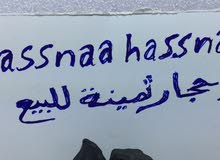 assnaa hassna
حجار ثمينة للبيع